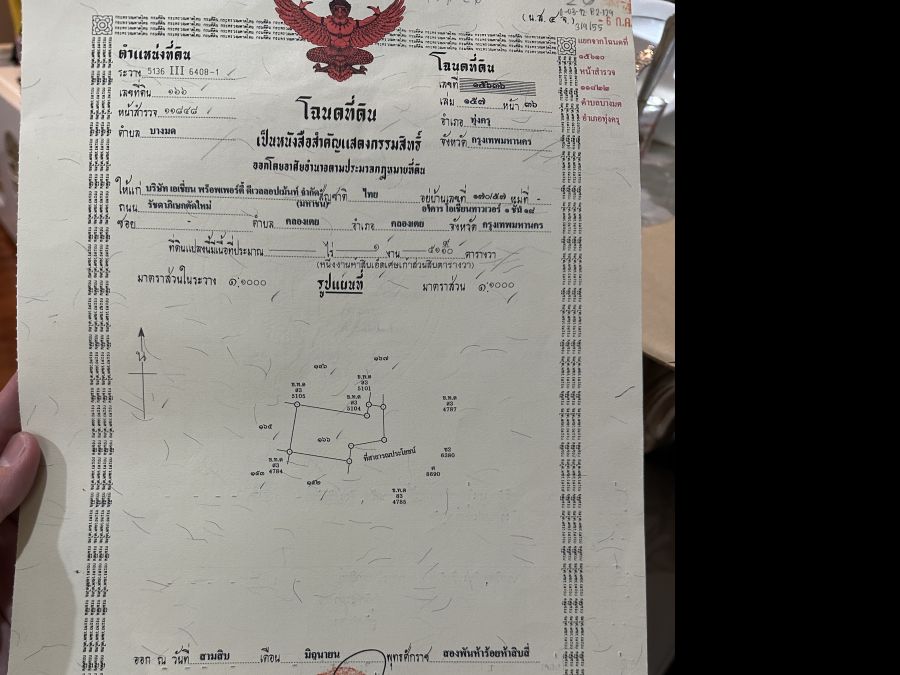 (น.ส. ๔ จ.)
ตำแหน่งที่ดิน
ระวาง 5136 III 6408-1
เลขที่ดิน ๑๖๖
หน้าสำรวจ ๑๑๘๔๘
ตำบล บางมด
โฉนดที่ดิน
เลขที่
เล่ม ๑๕๗ หน้า ๓๖
อำเภอ ทุ่งครุ
จังหวัด กรุงเทพมหานคร
แยกจากโฉนดที่
๑๕๖๑๐
หน้าสำรวจ
๑๑๘๒๒
ตำบลบางมด
อำเภอทุ่งครุ
โฉนดที่ดิน
เป็นหนังสือสำคัญแสดงกรรมสิทธิ์
ออกโดยอาศัยอำนาจตามประมวลกฎหมายที่ดิน
ให้แก่ บริษัท เอเชี่ยน พร็อพเพอร์ตี้ ดีเวลลอปเม้นท์ จำกัด (มหาชน) สัญชาติ ไทย อยู่บ้านเลขที่ ๑๗๐/๕๗ หมู่ที่ -
ถนน รัชดาภิเษกตัดใหม่ อาคาร โอเชี่ยนทาวเวอร์ ๑ ชั้น ๑๘
ซอย - ตำบล คลองเตย อำเภอ คลองเตย จังหวัด กรุงเทพมหานคร
ที่ดินแปลงนี้มีเนื้อที่ประมาณ - ไร่ ๑ งาน ตารางวา
(หนึ่งงานห้าสิบเอ็ดเศษเก้าส่วนสิบตารางวา)
มาตราส่วนในระวาง ๑:๑๐๐๐ รูปแผนที่ มาตราส่วน ๑:๑๐๐๐
น
๑๖๗
๑๔๖
ข.ท.ด
ส3
5105
ข.ท.ด
ส3
5101
ข.ท.ด
ส3
5104
ข.ท.ด
ส3
4787
๑๖๕
๑๖๖
ที่สาธารณประโยชน์
6380
ศ
8690
ข.ท.ด
ส3
4784
๑๕๓
๑๕๒
ข.ท.ด
ส3
4785
ออก ณ วันที่ สามสิบ เดือน มิถุนายน พุทธศักราช สองพันห้าร้อยห้าสิบสี่